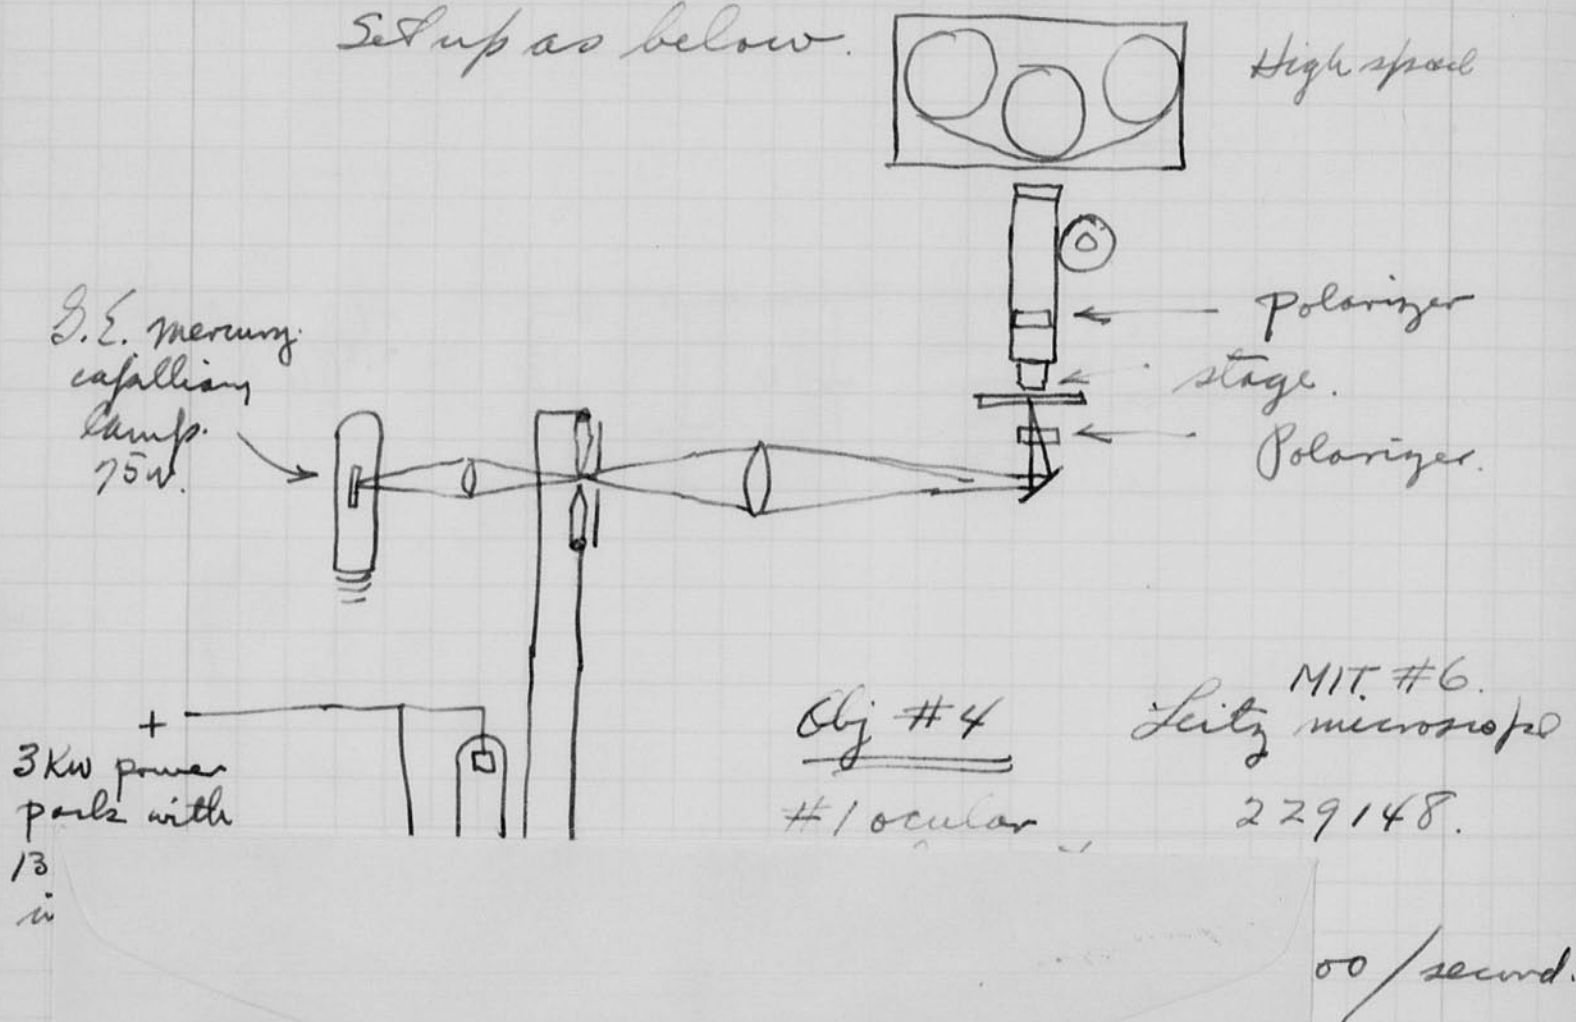 Set up as below.
High speed
G.E. mercury
capillary
lamp.
75w.
Polarizer
stage.
Polarizer.
+
3 Kw power
pack with
13
in
Obj #4
#1 ocular
MIT #6.
Leitz microscope
229148.
00/second.